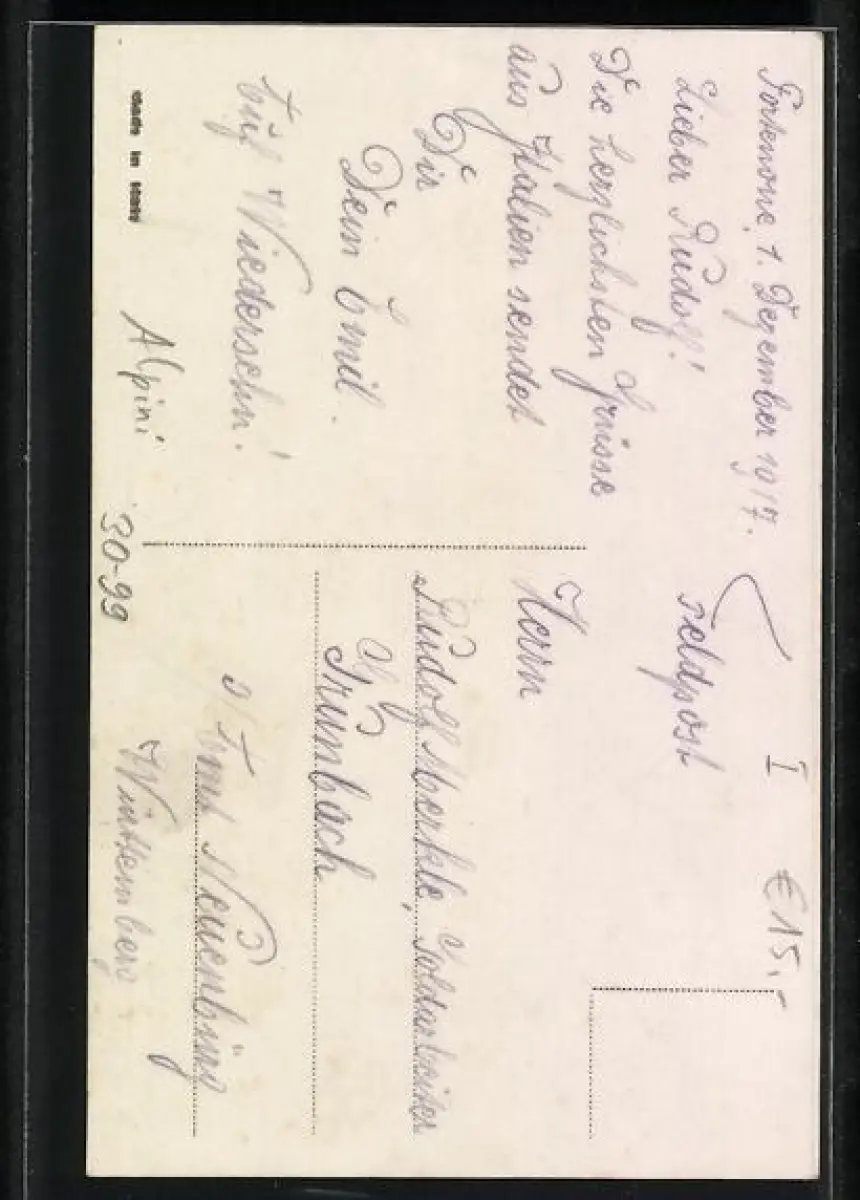 Pordenone, 1. Dezember 1917.
Lieber Rudolf!
Die herzlichsten Grüsse
aus Italien sendet
Dir
Dein Emil.
Auf Wiedersehn!
Alpini
30-99
Feldpost
I
€ 15.-
Herrn
Rudolf Merkle, Goldarbeiter
Grumbach
Neuenbürg
Württemberg